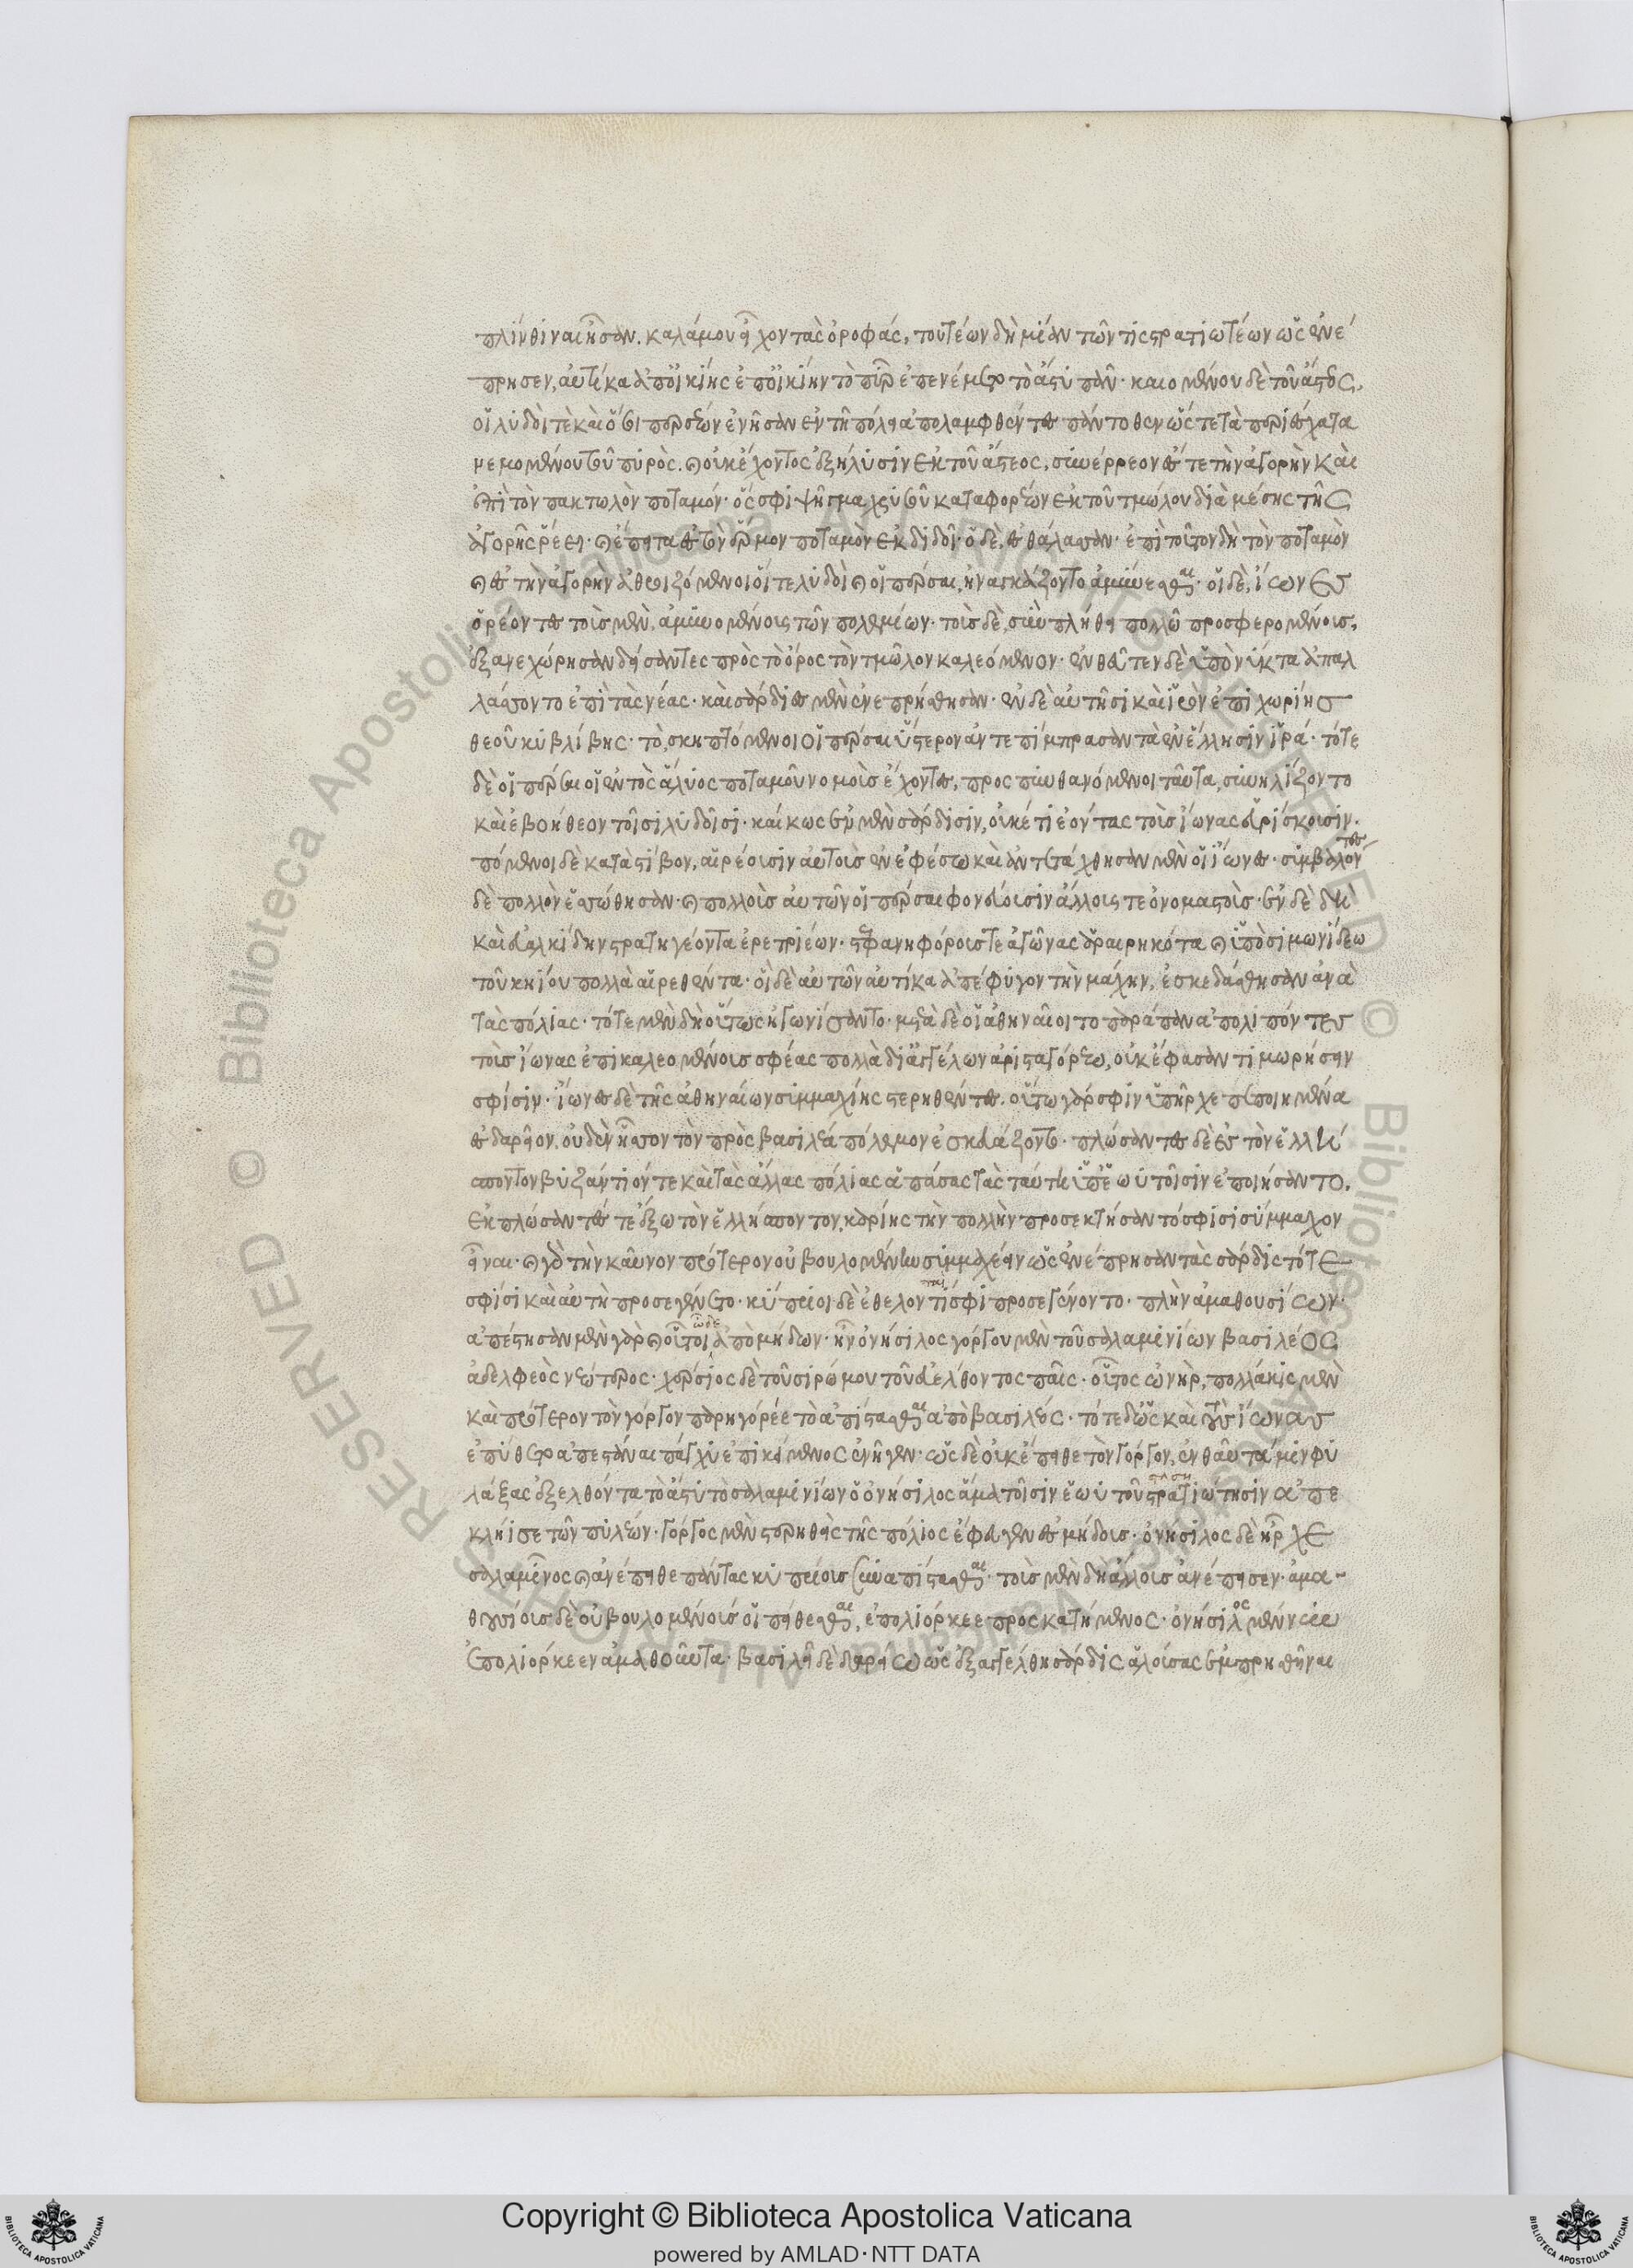 πλίνθιναι ἦσαν. καλάμου εἶχον τὰς ὀροφάς, τουτέων δὴ μίαν τῶν τὶς στρατιωτέων ὡς ἐνέ
πρησεν, αὐτίκα ἀπ' οἰκίης ἐπ' οἰκίην τὸ πῦρ ἐπενέμετο τὸ ἄστυ πᾶν· καιομένου δὲ τοῦ ἄστεος,
οἱ λυδοί τε καὶ ὅσοι περσέων ἐνῆσαν ἐν τῇ πόλει ἀπολαμφθέντες πάντοθεν ὥστε τὰ περιέσχατα
νεμομένου τοῦ πυρὸς. καὶ οὐκ ἔχοντες ἐξήλυσιν ἐκ τοῦ ἄστεος, συνέρρεον ἔς τε τὴν ἀγορὴν καὶ
ἐπὶ τὸν πακτωλὸν ποταμόν· ὅς σφι ψῆγμα χρυσοῦ καταφορέων ἐκ τοῦ τμώλου διὰ μέσης τῆς
ἀγορῆς ῥέει· καὶ ἔπειτα ἐς τὸν ἕρμον ποταμὸν ἐκδιδοῖ· ὁ δὲ, ἐς θάλασσαν· ἐπὶ τοῦτον δὴ τὸν ποταμὸν
καὶ ἐς τὴν ἀγορὴν ἀθροιζόμενοι οἵ τε λυδοὶ καὶ οἱ πέρσαι, ἠναγκάζοντο ἀμύνεσθαι· οἱ δὲ, ἴωνες
ὁρέοντες τοὺς μὲν, ἀμυνομένους τῶν πολεμίων· τοὺς δὲ, σὺν πλήθει πολλῷ προσφερομένους,
ἐξανεχώρησαν δείσαντες πρὸς τὸ ὄρος τὸν τμῶλον καλεόμενον· ἐνθεῦτεν δὲ ὑπὸ νύκτα ἀπαλ
λάσσοντο ἐπὶ τὰς νέας· καὶ σάρδιες μὲν ἐνεπρήσθησαν· ἐν δὲ αὐτῇσι καὶ ἱερὸν ἐπιχωρίης
θεοῦ κυβλίβης· τὸ, σκηπτόμενοι οἱ πέρσαι ὕστερον ἀντεπίμπρασαν τὰ ἐν ἕλλησιν ἱρά· τότε
δὲ οἱ πέρσαι οἱ ἐντὸς ἅλυος ποταμοῦ νομοὺς ἔχοντες, προσπυνθανόμενοι ταῦτα, συνηλίζοντο
καὶ ἐβοήθεον τοῖσι λυδοῖσι· καί κως ἐν μὲν σάρδισιν, οὐκέτι ἐόντας τοὺς ἴωνας εὑρίσκουσιν·
πόμενοι δὲ κατὰ στίβον, αἱρέουσιν αὐτοὺς ἐν ἐφέσω καὶ ἀντετάχθησαν μὲν οἱ ἴωνες· συμβαλόντες
δὲ πολλὸν ἑσσώθησαν· καὶ πολλοὺς αὐτῶν οἱ πέρσαι φονεύουσιν ἄλλους τε ὀνομαστοὺς· ἐν δὲ δὴ
καὶ εὐαλκίδην στρατηγέοντα ἐρετριέων· στεφανηφόρους τε ἀγῶνας ἀραιρηκότα καὶ ὑπὸ σιμωνίδεω
τοῦ κηίου πολλὰ αἱρεθέντα· οἱ δὲ αὐτῶν αὐτίκα ἀπέφυγον τὴν μάχην, ἐσκεδάσθησαν ἀνὰ
τὰς πόλιας· τότε μὲν δὴ οὕτως ἠγωνίσαντο· μετὰ δὲ οἱ ἀθηναῖοι τοπαράπαν ἀπολιπόντες
τοὺς ἴωνας ἐπικαλεομένους σφέας πολλὰ δι' ἀγγέλων ἀρισταγόρεω, οὐκ ἔφασαν τιμωρήσειν
σφίσιν· ἴωνες δὲ τῆς ἀθηναίων συμμαχίης στερηθέντες· οὕτω γάρ σφιν ὑπῆρχε πεποιημένα
ἐς δαρεῖον. οὐδὲν ἧσσον τὸν πρὸς βασιλέα πόλεμον ἐσκευάζοντο· πλώσαντες δὲ ἐς τὸν ἑλλή
σποντον βυζάντιόν τε καὶ τὰς ἄλλας πόλιας ἁπάσας τὰς ταύτη ὑπ' ἑωυτοῖσιν ἐποιήσαντο.
ἐκπλώσαντές τε ἔξω τὸν ἑλλήσποντον, καρίης τὴν πολλὴν προσεκτήσαντο σφίσι σύμμαχον
εἶναι· καὶ γὰρ τὴν καῦνον πρότερον οὐ βουλομένην συμμαχέειν ὡς ἐνέπρησαν τὰς σάρδις τότε
σφίσι καὶ αὐτὴ προσεγένετο· κύπριοι δὲ ἐθελονταί σφι προσεγένοντο· πλὴν ἀμαθουσίων·
ἀπέστησαν μὲν γὰρ καὶ οὗτοι ὧδε ἀπὸ μήδων· ἦν ὀνήσιλος γόργου μὲν τοῦ σαλαμινίων βασιλέος
ἀδελφεὸς νεώτερος· χέρσιος δὲ τοῦ σιρώμου τοῦ εὐέλθοντος παῖς· οὗτος ὡνὴρ, πολλάκις μὲν
καὶ πρότερον τὸν γόργον παρηγόρεε τὸ ἀπίστασθαι ἀπὸ βασιλέος· τότε δ' ὡς καὶ τοὺς ἴωνας
ἐπύθετο ἀπεστάναι πάγχυ ἐπικείμενος ἐνῆγεν· ὡς δὲ οὐκ ἔπειθε τὸν γόργον, ἐνθαῦτά μιν φυ
λάξας ἐξελθόντα τὸ ἄστυ τὸ σαλαμινίων ὁ ὀνήσιλος ἅμα τοῖσιν ἑωυτοῦ στρατιώτησιν ἀπε
κλήισε τῶν πυλέων· γόργος μὲν στερηθεὶς τῆς πόλιος ἔφευγεν ἐς μήδους· ὀνήσιλος δὲ ἦρχε
σαλαμῖνος καὶ ἀνέπειθε πάντας κυπρίους συναπίστασθαι· τοὺς μὲν δὴ ἄλλους ἀνέπεισεν· ἀμα-
θουσίους δὲ οὐ βουλομένους οἱ πείθεσθαι, ἐπολιόρκεε προσκατήμενος· ὀνήσιλος μέν νυν
ἐπολιόρκεεν ἀμαθοῦντα· βασιλῆι δὲ δαρείω ὡς ἐξαγγέλθη σάρδις ἁλούσας ἐμπρησθῆναι